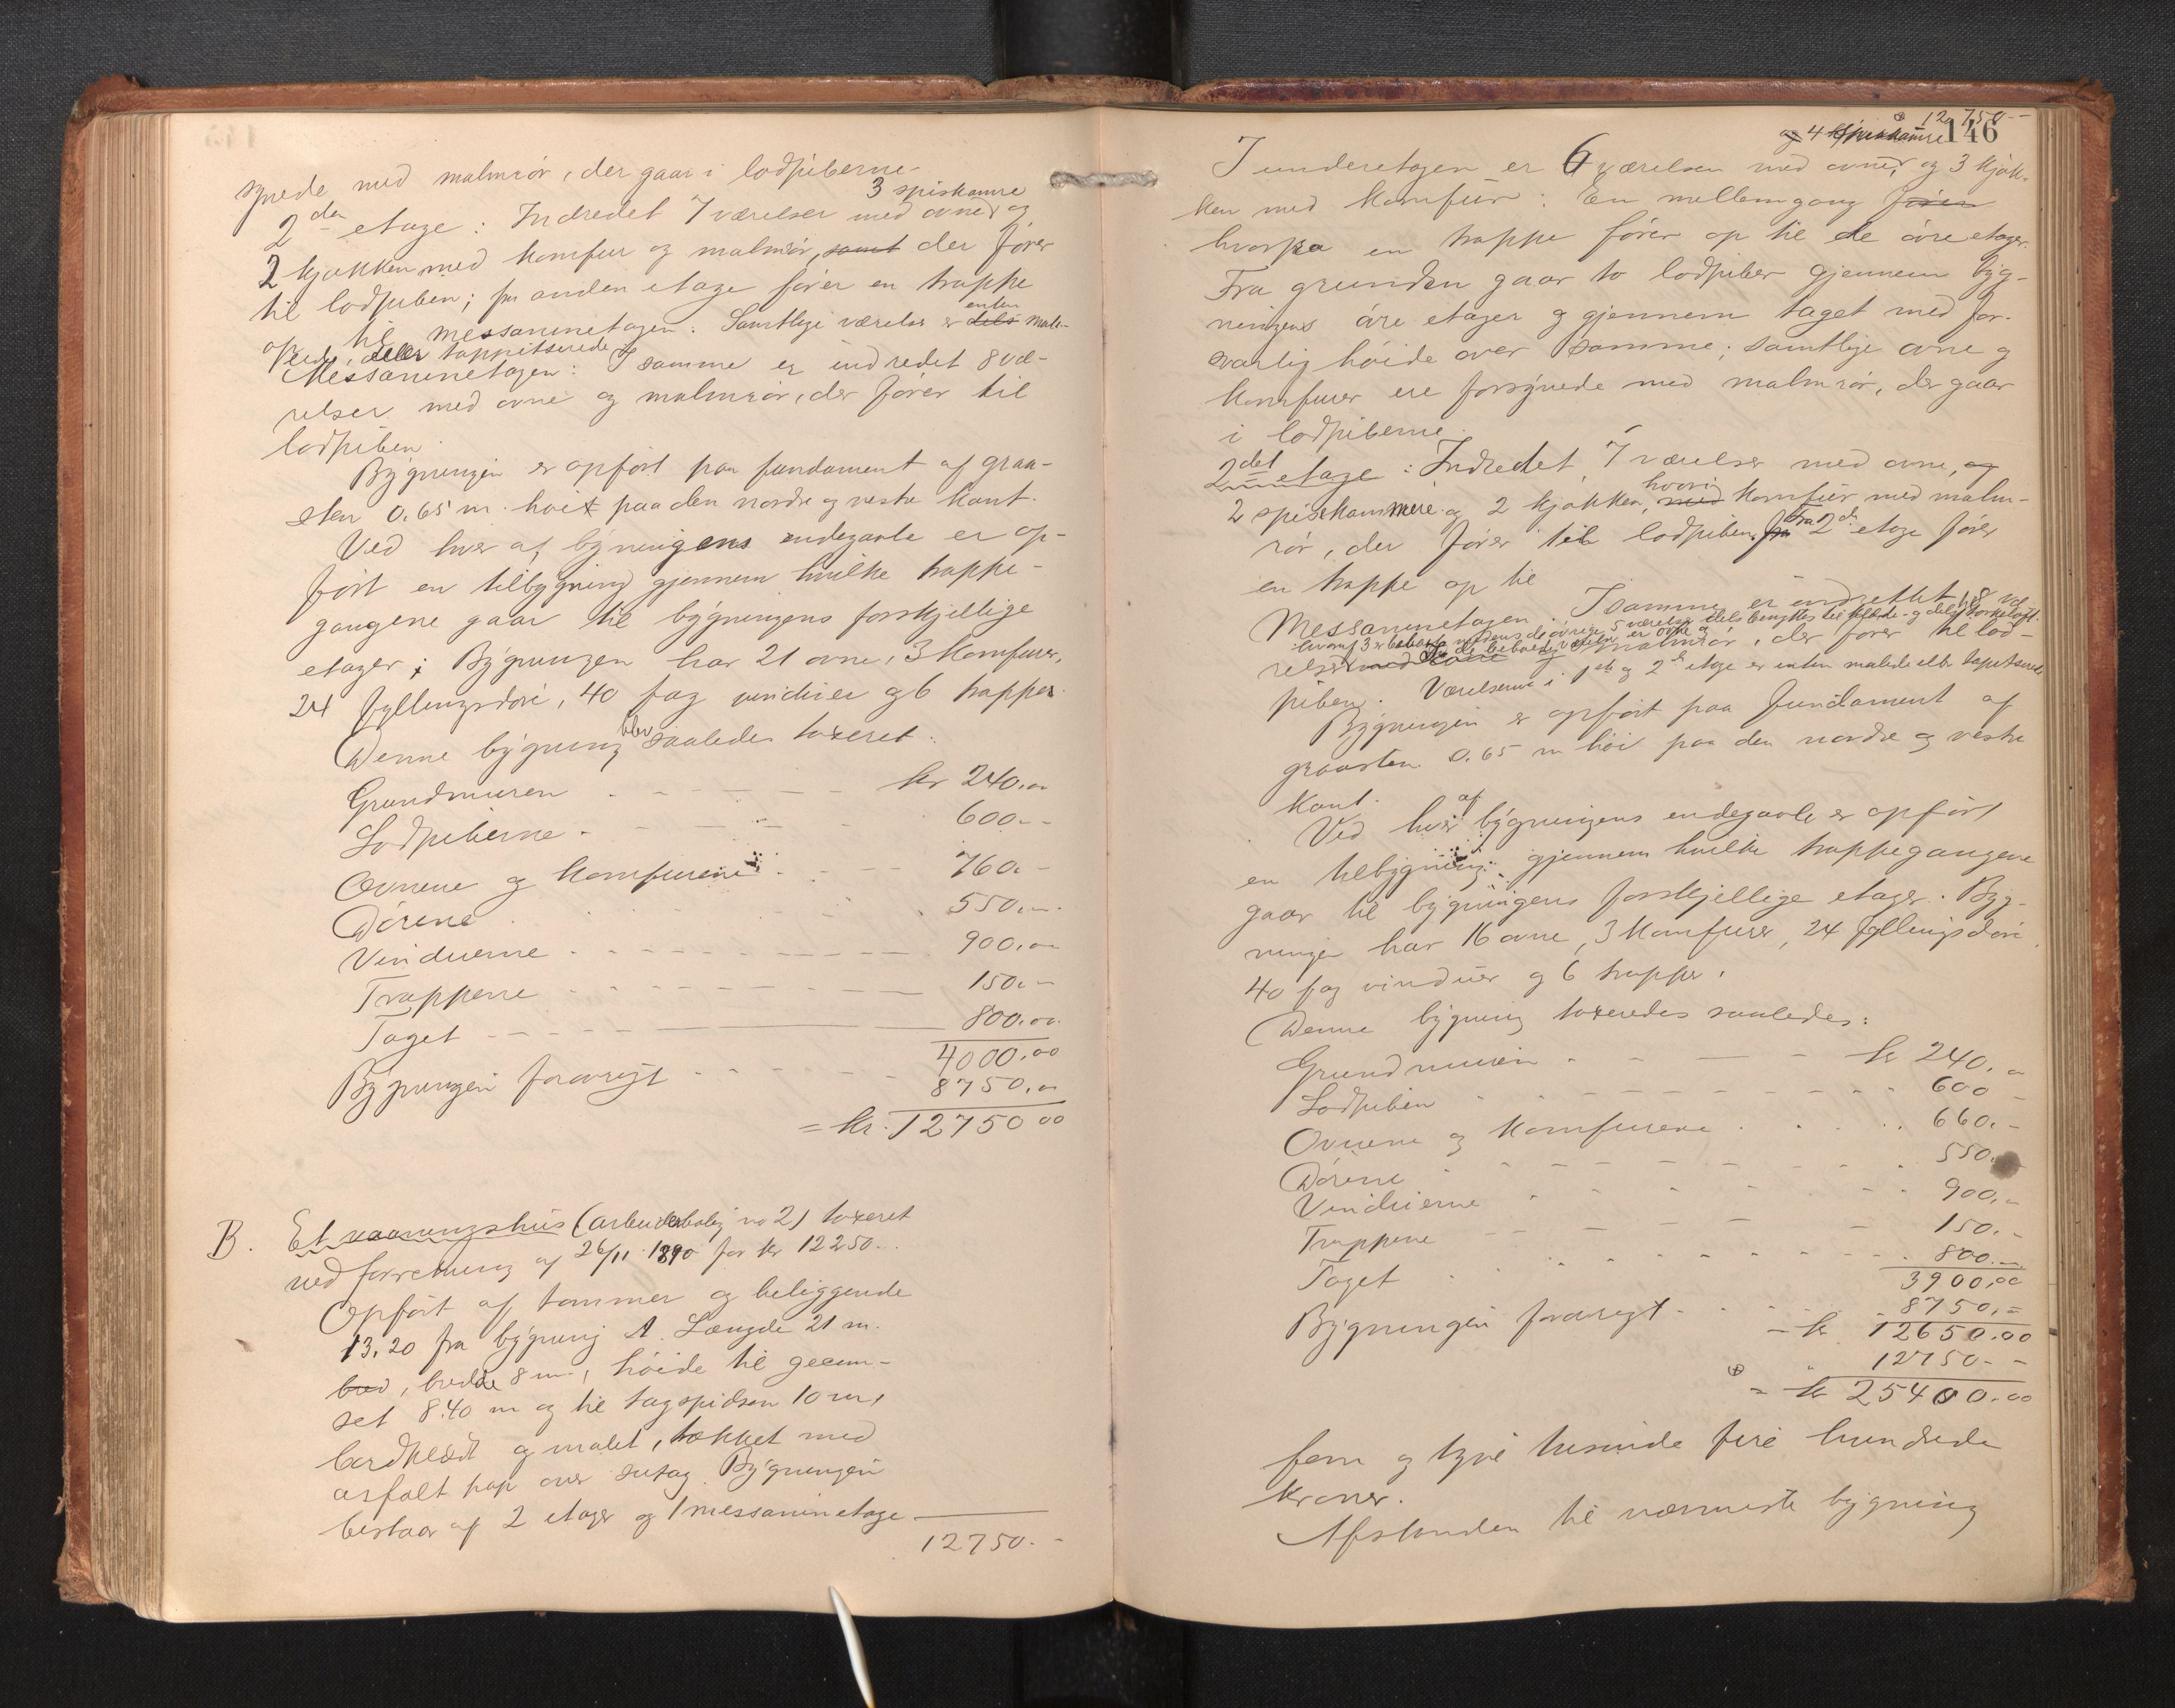 synede med malmrör, der gaar i lodpiberne.
3 spiskamre
2den etage: Indredet 7 værelser med ovne og
2 kjøkken med komfur og malmrör, samt der förer
til lodpiben; fra anden etage förer en trappe
op til messaninetagen. Samtlige værelser er dels enten male-
rede, eller tappitserede.
Messaninetagen: I samme er indredet 8 væ-
relser med ovne og malmrör, der förer til
lodpiben.
Bygningen er opfört paa fundament af graa-
sten 0.65 m. höit paa den nordre og vestre kant.
Ved hver af bygningens endegavle er op-
fört en tilbygning gjennem hvilke trappe-
gangene gaar til bygningens forskjellige
etager; Bygningen har 21 ovne, 3 komfurer,
24 fyllingsdöre, 40 fag vinduer og 6 trapper.
Denne bygning blev saaledes taxeret:
Grundmuren kr 240.00
Lodpiberne 600.-
Ovnene og komfurene 760.-
Dörene 550.-
Vinduerne 900.00
Trapperne 150.-
Taget 800.00
4000.00
Bygningen forövrigt 8750.00
= kr. 12750 00
B. Et vaaningshus (arbeiderbolig no 2) taxeret
ved forretning af 26/11 1890 for kr 12250.-
Opfört af tømmer og beliggende
13.20 fra bygning A. Længde 21 m.
bred, bredde 8 m., höide til gesim-
set 8.40 m og til tagspidsen 10 m,
bordklædt og malet, tækket med
asfalt pap over sutag. Bygningen
bestaar af 2 etager og 1 messaninetage
12750.-
12,750.-
og 4 spiskamre 146
I underetagen er 6 værelser med ovne, og 3 kjøk-
ken med komfur: En mellemgang förer
hvorfra en trappe förer op til de övre etager.
Fra grunden gaar to lodpiber gjennem byg-
ningens övre etager og gjennem taget med for-
svarlig höide over samme; samtlige ovne og
komfurer ere forsynede med malmrör, der gaar
i lodpiberne.
2det etage: Indredet 7 værelser med ovne, og
2 spiskammere og 2 kjøkken, med hvori komfur med malm-
rör, der förer til lodpiben. fra Fra 2den etage förer
en trappe op til
Messaninetagen: I samme er indrettet til 8 væ-
hvoraf 3 er beboet medens de övrige 5 værelser dels benyttes til klæde- og dels törkeloft.
relser med ovne I de beboede værelser er ovne og malmrör, der förer til lod-
piben. Værelserne i 1ste og 2den etage er enten malede eller tapetserede
Bygningen er opfört paa fundament af
graasten 0.65 m höi paa den nordre og vestre
kant.
Ved hver af bygningens endegavle er opfört
en tilbygning gjennem hvilke trappegangene
gaar til bygningens forskjellige etager. Byg-
ningen har 16 ovne, 3 komfurer, 24 fyllingsdöre
40 fag vinduer og 6 trapper.
Denne bygning taxeredes saaledes:
Grundmuren kr 240.-
Lodpiben 600
Ovnene og komfurene 660.-
Dörene 550.-
Vinduerne 900.-
Trapperne 150.-
Taget 800.-
3900.00
Bygningen forövrigt 8750.=
= kr 12650.00
" 12750.-
= kr 25400.00
fem og tyve tusinde fire hundrede
kroner.
Afstanden til nærmeste bygning